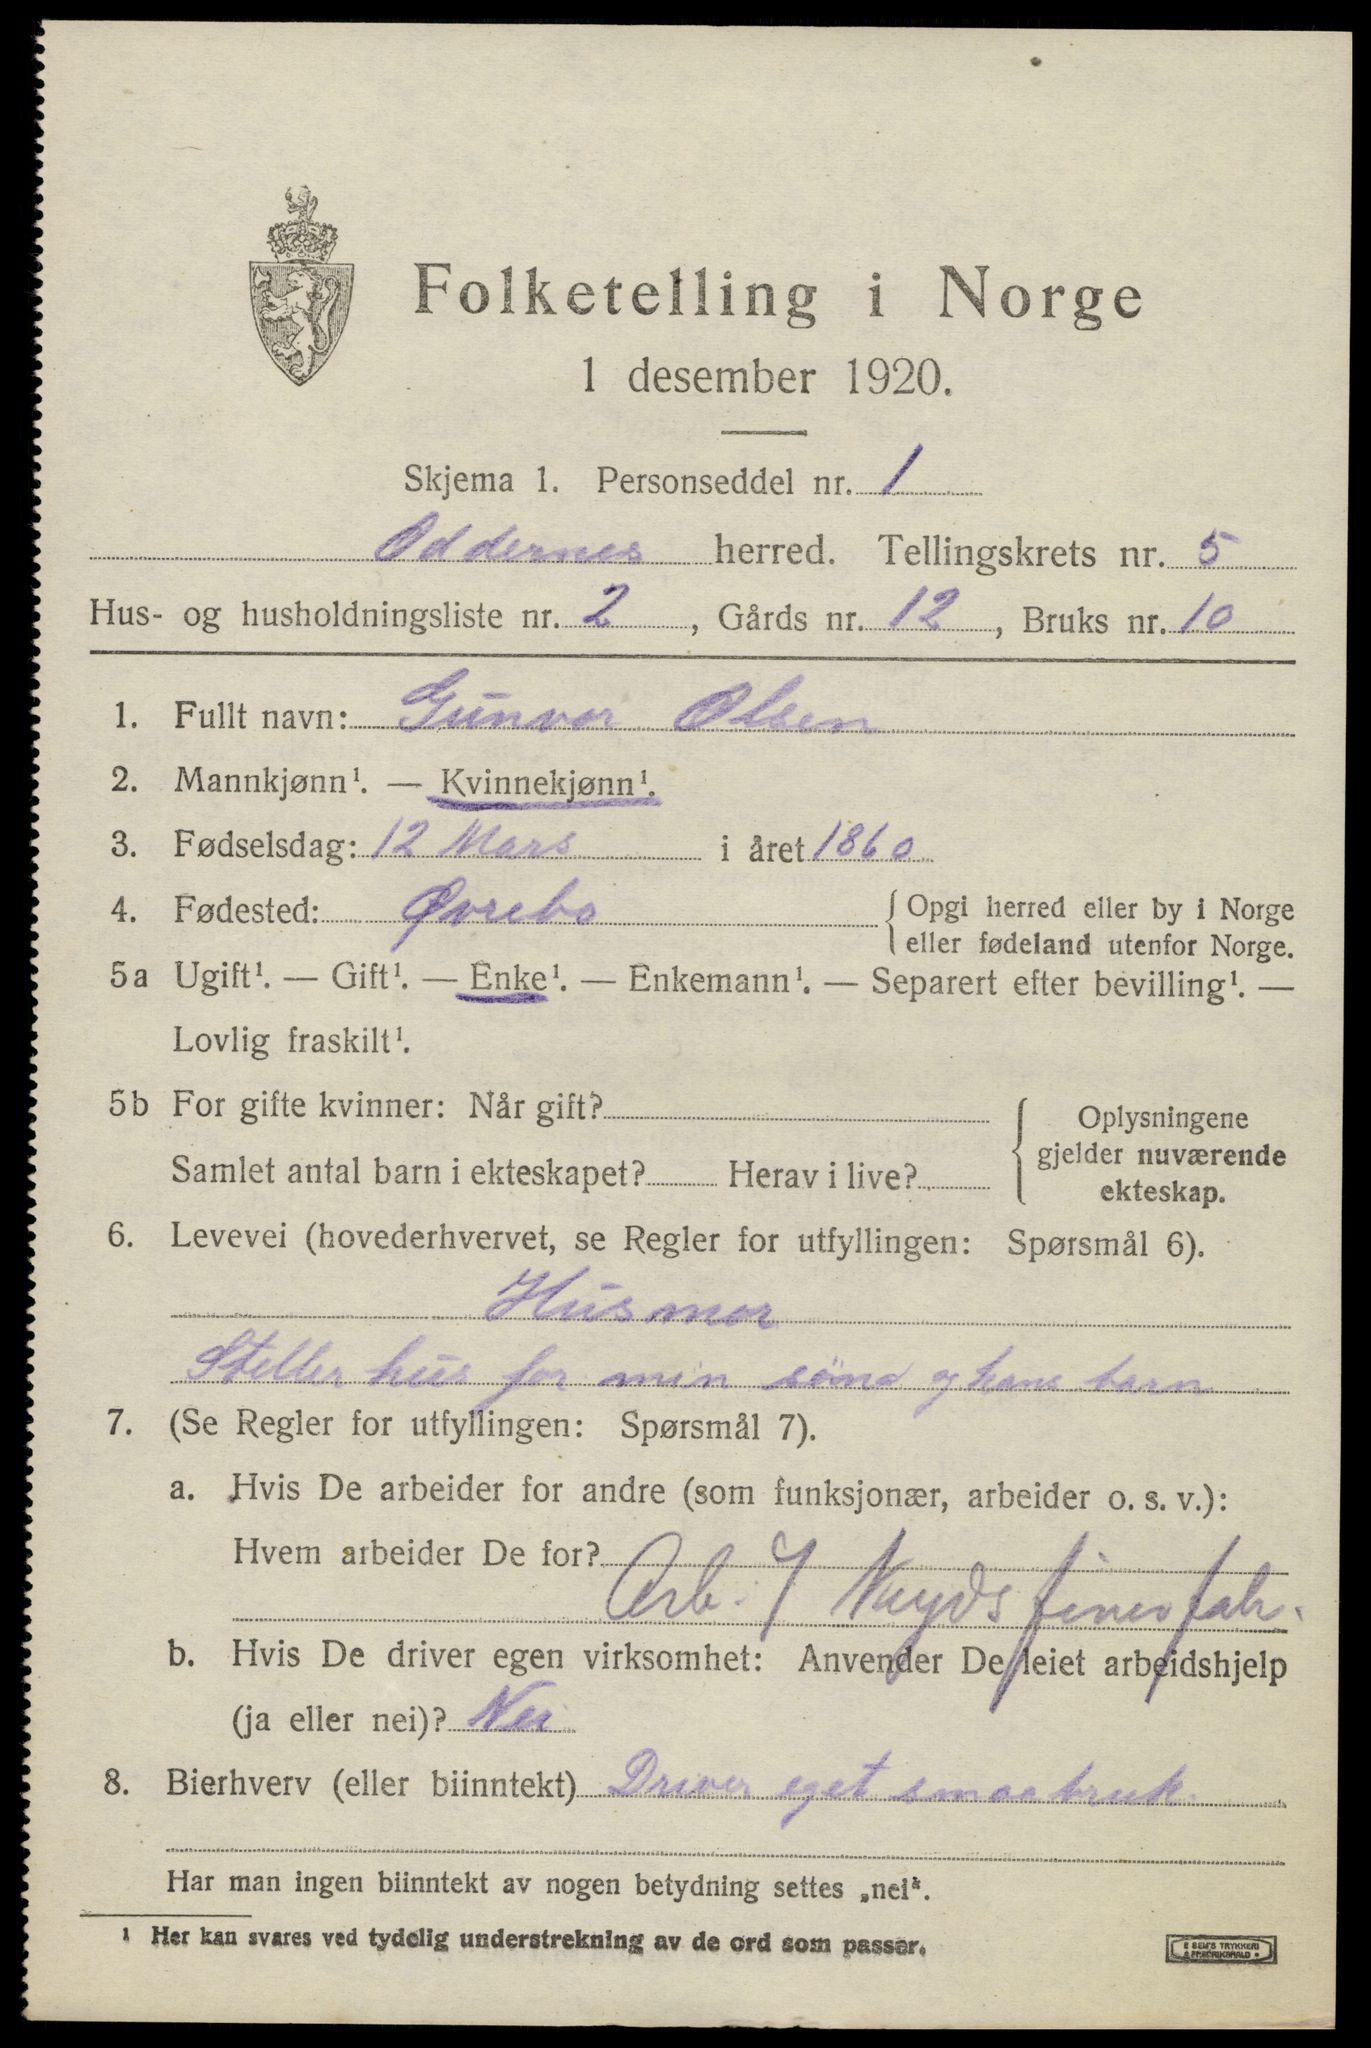 Folketelling i Norge
1 desember 1920.
Skjema 1. Personseddel nr. 1
Oddernes herred. Tellingskrets nr. 5
Hus- og husholdningsliste nr. 2, Gårds nr. 12, Bruks nr. 10
1. Fullt navn: Gunvor Olsen
2. Mannkjønn¹. — Kvinnekjønn¹.
3. Fødselsdag: 12 Mars i året 1860
4. Fødested: Øvrebo { Opgi herred eller by i Norge
eller fødeland utenfor Norge.
5a Ugift¹. — Gift¹. — Enke¹. — Enkemann¹. — Separert efter bevilling¹. —
Lovlig fraskilt¹.
5b For gifte kvinner: Når gift?
Samlet antal barn i ekteskapet? Herav i live?
Oplysningene
gjelder nuværende
ekteskap.
6. Levevei (hovederhvervet, se Regler for utfyllingen: Spørsmål 6).
Husmor
Steller hus for min söna og hans barn
7. (Se Regler for utfyllingen: Spørsmål 7).
a. Hvis De arbeider for andre (som funksjonær, arbeider o. s. v.):
Hvem arbeider De for?
Arb.
b. Hvis De driver egen virksomhet: Anvender De leiet arbeidshjelp
(ja eller nei)? Nei
8. Bierhverv (eller biinntekt) Driver eget smaabruk.
Har man ingen biinntekt av nogen betydning settes „nei“.
¹ Her kan svares ved tydelig understrekning av de ord som passer.
E SEM'S TRYKKERI
FREDRIKSHALD